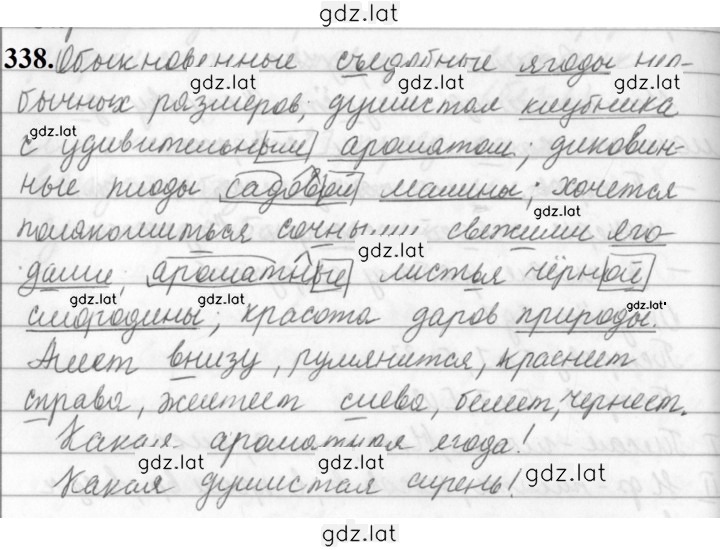 gdz.lat
338. Обыкновенные съедобные ягоды нео-
gdz.lat gdz.lat gdz.lat
бычных размеров; душистая клубника
gdz.lat
с удивительным ароматом; диковин-
gdz.lat gdz.lat gdz.lat
ные плоды садовой малины; хочется
gdz.lat
полакомиться сочными свежими яго-
gdz.lat
дами, ароматные листья чёрной
gdz.lat gdz.lat gdz.lat
смородины; красота даров природы.
Алеет внизу, румянится, краснеет
gdz.lat gdz.lat gdz.lat
справа, желтеет слева, белеет, чернеет.
Какая ароматная ягода!
gdz.lat gdz.lat
Какая душистая сирень!
gdz.lat